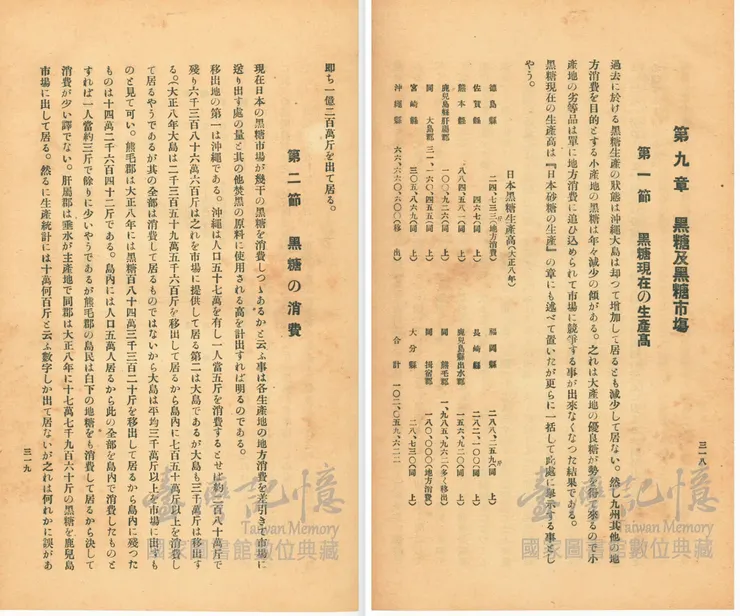 三一八
第九章 黑糖及黑糖市場
第一節 黑糖現在の生產高
過去に於ける黑糖生產の狀態は沖繩大島は却つて增加して居るとも減少して居ない。然し九州其他の地
方消費を目的とする小產地の黑糖は年々減少の傾がある。之れは大產地の優良糖が勢を得て來るので小
產地の劣等品は單に地方消費に追ひ込められて市場に競爭する事が出來なくなつた結果である。
黑糖現在の生產高は『日本砂糖の生產』の章にも述べて置いたが更らに一括して此處に擧示する事とし
やう。
日本黑糖生產高(大正八年)
德島縣 二四、七三三(地方消費) 福岡縣 二八八、二五九(同 上)
佐賀縣 四六七(同 上) 長崎縣 二八二、一〇〇(同 上)
熊本縣 八八四、五八一(同 上) 鹿兒島縣出水郡 一五六、九二〇(同 上)
鹿兒島縣肝屬郡 一〇〇、九二六(同 上) 同 熊毛郡 一、九八五、九六二(多く移出)
同 大島郡 三一、一六〇、四五五(同 上) 同 揖宿郡 一八〇、〇〇〇(地方消費)
宮崎縣 三〇五、八九六(同 上) 大分縣 二八、七三〇(同 上)
沖繩縣 六六、六六〇、六〇〇(移 出) 合計 一〇二、〇五九、六二二
卽ち一億二百萬斤を出て居る。
第二節 黑糖の消費
現在日本の黑糖市場が幾干の黑糖を消費しつゝあるかと云ふ事は各生產地の地方消費を差引きで市場に
送り出す處の量と其の他焚黑の原料に使用される高を計出すれば明るのである。
移出地の第一は沖繩である。沖繩は人口五十七萬を有し一人當五斤を消費するとせば約二百八十萬斤で
殘り六千三百八十六萬六百斤は之れを市場に提供して居る第二は大島であるが大島も三千萬斤は移出す
る。(大正八年大島は二千三百五十九萬五千六百斤を移出して居るから島內に七百五十萬斤以上を消費し
て居るやうであるが其の全部は消費して居るものではないから大島は平均三千萬斤以上を市場に出すも
のと見て可い。熊毛郡は大正八年には黑糖百八十四萬三千三百二十斤を移出して居るから島內に殘つた
ものは十四萬二千六百四十二斤である。島內には人口五萬人居るから此の全部を島內で消費したものと
すれば一人當約三斤で餘りに少いやうであるが熊毛郡の島民は白下の地糖をも消費して居るから決して
消費が少い譯でない。肝屬郡は垂水が主產地で同郡は大正八年に十七萬七千九百六十斤の黑糖を鹿兒島
市場に出して居る。然るに生產統計には十萬何百斤と云ふ數字しか出て居ないが之れは何れかに誤があ
三一九
臺灣記憶
Taiwan Memory
國家圖書館數位典藏
臺灣記憶
Taiwan Memory
國家圖書館數位典藏